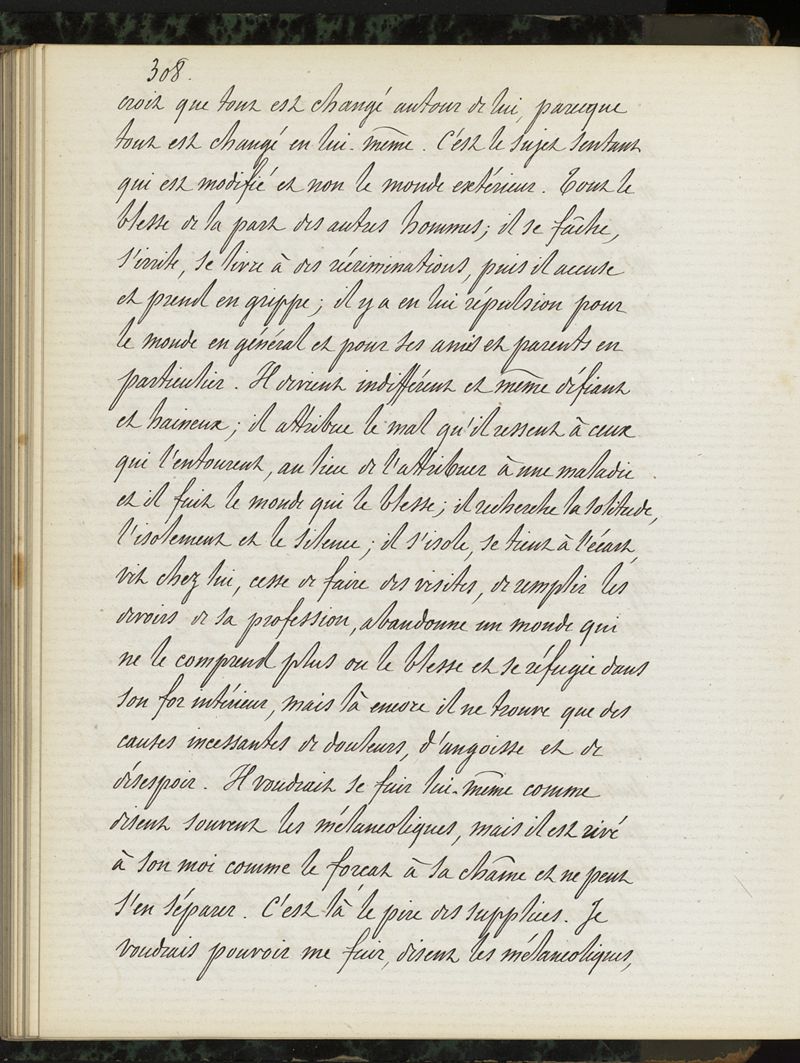 308.
croit que tout est changé autour de lui, parceque
tout est changé en lui-même. C'est le sujet sentant
qui est modifié et non le monde extérieur. Tout le
blesse de la part des autres hommes; il se fâche,
s'irrite, se livre à des récriminations, puis il accuse
et prend en grippe; il y a en lui répulsion pour
le monde en général et pour ses amis et parents en
particulier. Il devient indifférent et même défiant
et haineux; il attribue le mal qu'il ressent à ceux
qui l'entourent, au lieu de l'attribuer à une maladie
et il fuit le monde qui le blesse; il recherche la solitude,
l'isolement et le silence; il s'isole, se tient à l'écart,
vit chez lui, cesse de faire des visites, de remplir les
devoirs de sa profession, abandonne un monde qui
ne le comprend plus ou le blesse et se réfugie dans
son for intérieur, mais là encore il ne trouve que des
causes incessantes de douleurs, d'angoisse et de
désespoir. Il voudrait se fuir lui-même comme
disent souvent les mélancoliques, mais il est rivé
à son moi comme le forcat à sa chaîne et ne peut
s'en séparer. C'est là le pire des supplices. Je
voudrais pouvoir me fuir, disent les mélancoliques,